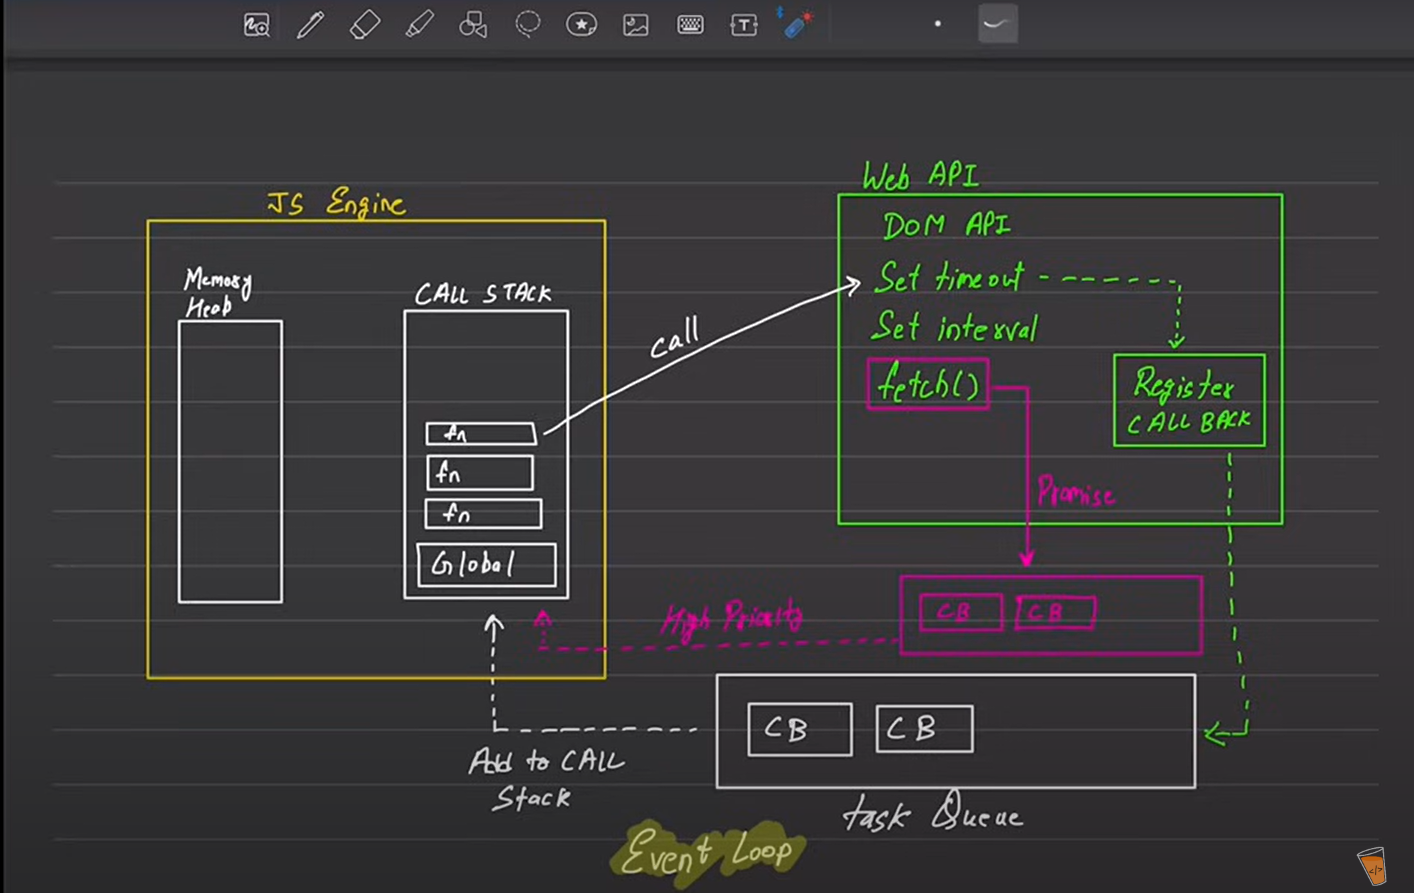 JS Engine
Memory
Heap
CALL STACK
fn
fn
fn
Global
call
Web API
DOM API
Set timeout
Set interval
fetch()
Register
CALL BACK
Promise
High Priority
CB CB
CB CB
Add to CALL
Stack
task Queue
Event Loop
T
</>